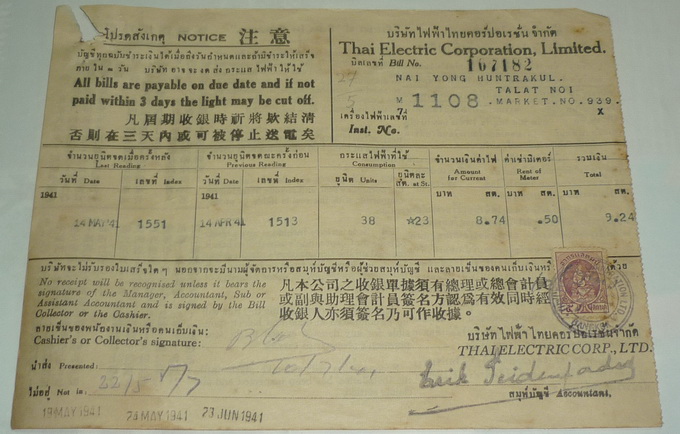 โปรดสังเกตุ NOTICE 注意
บัญชีทุกฉบับชำระเงินได้เมื่อถึงวันกำหนดและถ้ามิชำระให้เสร็จ
ภายใน ๓ วัน บริษัทอาจจะงดส่งกระแสไฟฟ้าให้ใช้
All bills are payable on due date and if not
paid within 3 days the light may be cut off.
凡屆期收銀時祈將欺結清
否則在三天內或可被停止送電矣
บริษัทไฟฟ้าไทยคอร์ปอเรชั่นจำกัด
Thai Electric Corporation, Limited.
บิลเลขที่ Bill No. 167182
NAI YONG HUNTRAKUL.
TALAT NOI
M 1108 .MARKET.NO.939.
7 X
เครื่องไฟฟ้าเลขที่
Inst. No.
จำนวนยูนิตจดเมื่อครั้งหลัง จำนวนยูนิตจดขณะครั้งก่อน กระแสไฟฟ้าที่ใช้ จำนวนเงินค่าไฟ ค่าเช่ามิเตอร์ รวมเงิน
Last Reading Previous Reading Consumption Amount for Current Rent of Meter Total
วันที่ Date เลขที่ Index วันที่ Date เลขที่ Index ยูนิต Units ยูนิตละ สต. at St. บาท สต. บาท สต. บาท สต.
1941 1941
14 MAY 41 1551 14 APR 41 1513 38 ☆23 8.74 .50 9.24
บริษัทจะไม่รับรองใบเสร็จใดๆ นอกจากจะมีนามผู้จัดการหรือสมุห์บัญชีหรือผู้ช่วยสมุห์บัญชี และลายเซ็นของคนเก็บเงินหรือ ด้วย
No receipt will be recognised unless it bears the
signature of the Manager, Accountant, Sub or
Assistant Accountant and is signed by the Bill
Collector or the Cashier.
凡本公司之收銀單據須有總理或總會計員
或副與助理會計員簽名方認為有效同時經
收銀人亦須簽名乃可作收據.
ลายเซ็นของพนักงานเงินหรือคนเก็บเงิน:
Cashier's or Collector's signature:
บริษัทไฟฟ้าไทยคอร์ปอเรชั่นจำกัด
THAI ELECTRIC CORP., LTD.
นำส่ง Presented:
Erik Seidenfaden
ไม่อยู่ Not in: 22/5
สมุห์บัญชี Accountant,
19 MAY 1941 23 JUN 1941